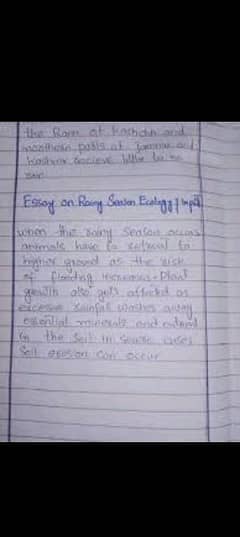 the Rann of Kachchh and
northern parts of Jammu and
Kashmir receive little to no
rain
Essay on Rainy Season Ecology / Impact
when the rainy season occurs
animals have to retreat to
higher ground as the risk
of flooding increases. Plant
growth also gets affected as
excessive rainfall washes away
essential minerals and
in the soil. In some cases
Soil erosion can occur